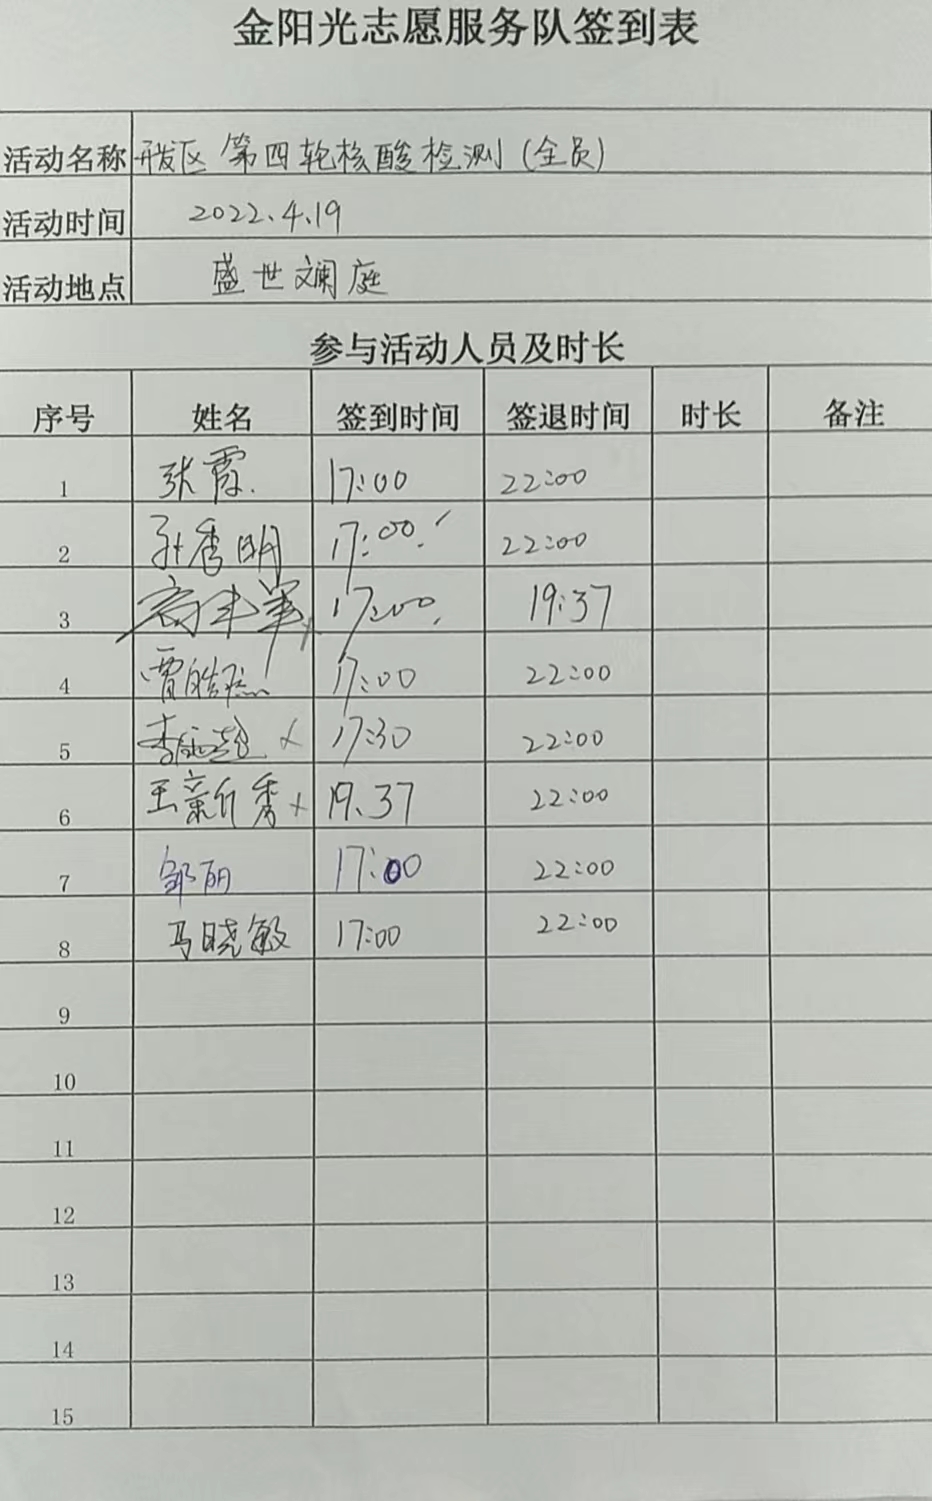 金阳光志愿服务队签到表
活动名称 开发区 第四轮核酸检测(全员)
活动时间 2022.4.19
活动地点 盛世斓庭
参与活动人员及时长
序号 姓名 签到时间 签退时间 时长 备注
1 张霞. 17:00 22:00
2 孙秀明 17:00. 22:00
3 17:00. 19:37
4 17:00 22:00
5 × 17:30 22:00
6 王新秀 × 19.37 22:00
7 邹丽 17:00 22:00
8 马晓敏 17:00 22:00
9
10
11
12
13
14
15